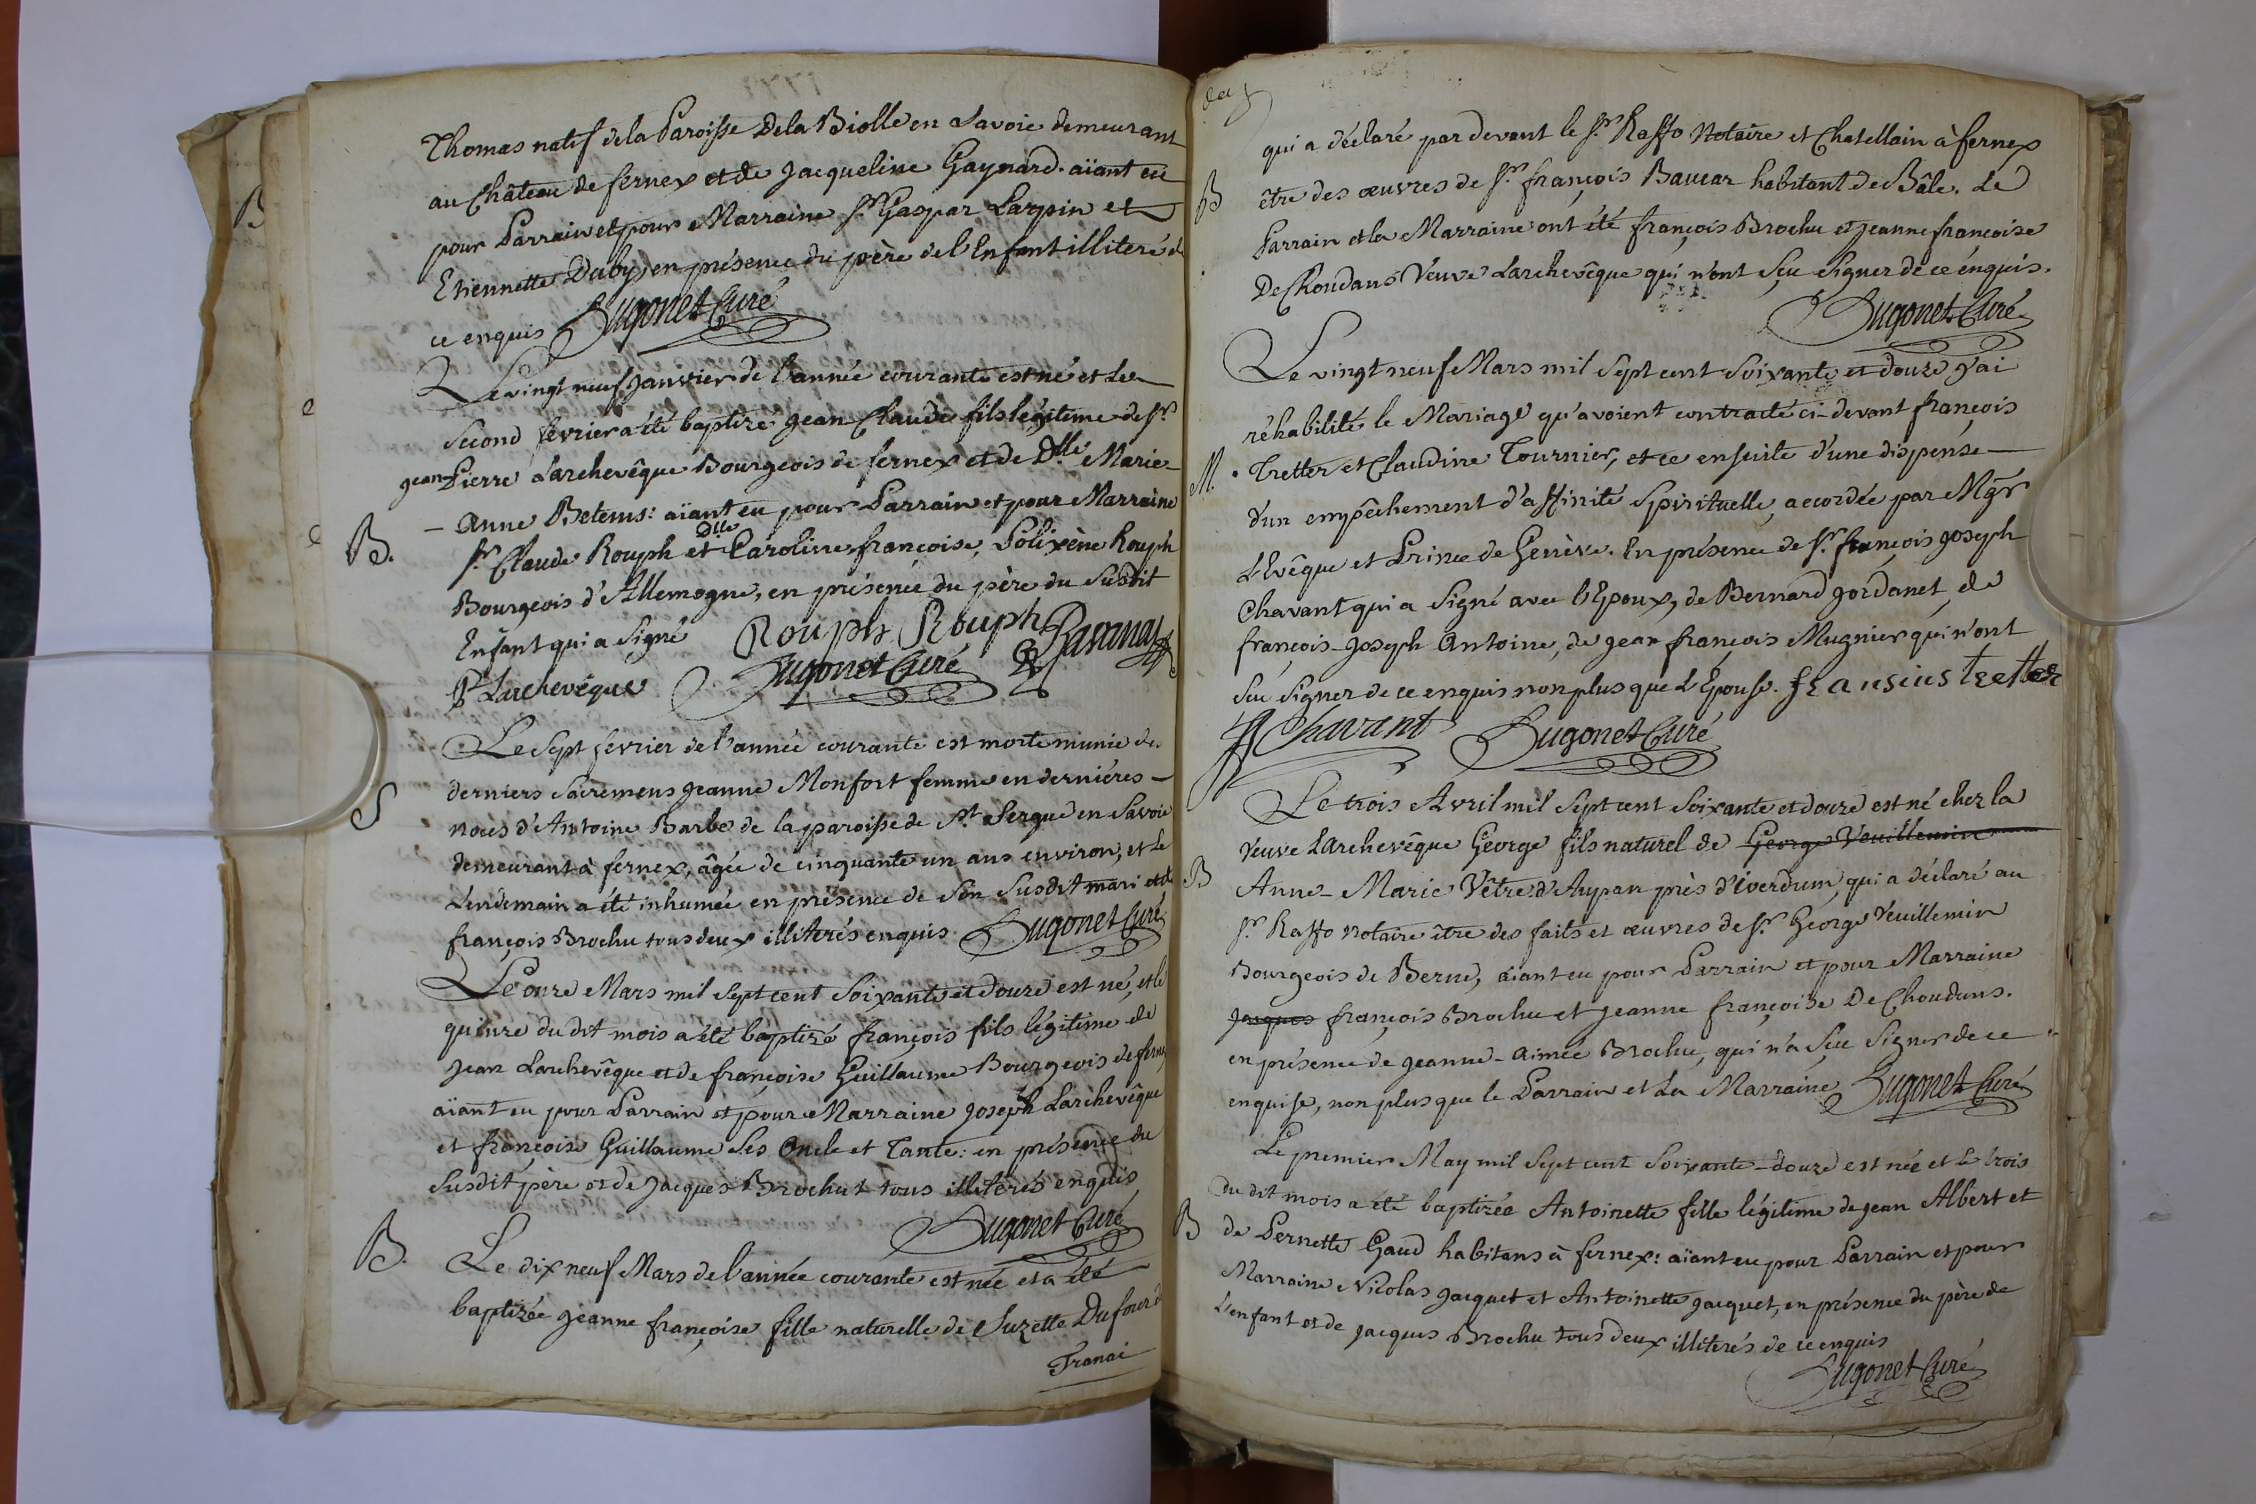 Thomas natif de la Paroisse De la Biolle en Savoie demeurant
au Château de fernex et de Jacqueline Gaynard. aïant eu
pour Parrain et pour Marraine Sr Gaspar Larpin et
Etiennette Duby, en présence du père de l'Enfant illiteré de
ce enquis Hugonet Curé
Le vingt neuf Janvier de l'année courante est né et Le
Second fevrier a été baptize Jean Claude fils légitime de Sr
jean Pierre Larchevêque Bourgeois de fernex et de Dlle Marie
B.
- Anne Betems: aïant eu pour Parrain et pour Marraine
Sr Claude Rouph et Dlle Caroline françoise, Polixène Rouph
Bourgeois d'Allemogne, en présence du père du Susdit
Enfant qui a Signé Rouph Rouph
P Larchevêque Hugonet Curé
Le Sept fevrier de l'année courante est morte munie des
S
derniers Sacremens Jeanne Monfort femme en dernières -
noces d'Antoine Barbe de la paroisse de St Sergue en Savoie
demeurant à fernex, âgée de cinquante un ans environ, et Le
Lendemain a été inhumée en présence de Son Susdit mari et de
françois Brochu tous deux illiterés enquis. Hugonet Curé
Le onze Mars mil Sept cent Soixante et douze est né, et le
quinze du dit mois a été baptizé françois fils légitime de
Jean Larchevêque et de françoise Guillaume Bourgeois de fernex
aïant eu pour Parrain et pour Marraine Joseph Larchevêque
et françoise Guillaume Ses Oncle et Tante: en présence du
Susdit père et de Jacques Brochut tous illiterés enquis
Hugonet Curé
B.
Le dix neuf Mars de l'année courante est née et a été
baptizée Jeanne françoise fille naturelle de Suzette Dufour de
Tranai
qui a déclaré par devant le Sr Raffo Notaire et Chatellain à fernex
B
être des œuvres de Sr françois Baucar habitant de Bâle. Le
Parrain et la Marraine ont été françois Brochu et Jeanne françoise
De Choudans Veuve Larchevêque qui n'ont Seu Signer de ce enquis.
Hugonet Curé
Le vingt neuf Mars mil Sept cent Soixante et douze j'ai
réhabilité le Mariage qu'avoient contracté ci-devant françois
M.
Tretter et Claudine Tournier, et ce ensuite d'une dispense -
d'un empêchement d'affinité Spirituelle, accordée par Mgr
L'Evêque et Prince de Genève. En présence de Sr françois Joseph
Chavant qui a Signé avec l'Epoux, de Bernard Jordanet, de
françois-Joseph Antoine, de Jean françois Mugnier qui n'ont
Seu Signer de ce enquis non plus que L'Epouse. fransius tretter
Chavant Hugonet Curé
Le trois Avril mil Sept cent Soixante et douze est né chez la
Veuve Larchevêque George fils naturel de George Veuillemin
B
Anne-Marie Vêtre d'Aypan près d'Everdum, qui a déclaré au
Sr Raffo Notaire être des faits et œuvres de Sr George Veuillemin
Bourgeois de Berne, aïant eu pour Parrain et pour Marraine
Jaques françois Brochu et Jeanne françoise De Choudans.
en présence de Jeanne-Aimée Brochu, qui n'a Seu Signer de ce
enquise, non plus que le Parrain et La Marraine. Hugonet Curé
Le premier May mil Sept cent Soixante-douze est née et le trois
du dit mois a été baptizée Antoinette fille légitime de Jean Albert et
B
de Pernette Gaud habitans à fernex: aïant eu pour Parrain et pour
Marraine Nicolas Jacquet et Antoinette Jacquet, en présence du père de
L'enfant et de Jacques Brochu tous deux illiterés de ce enquis
Hugonet Curé